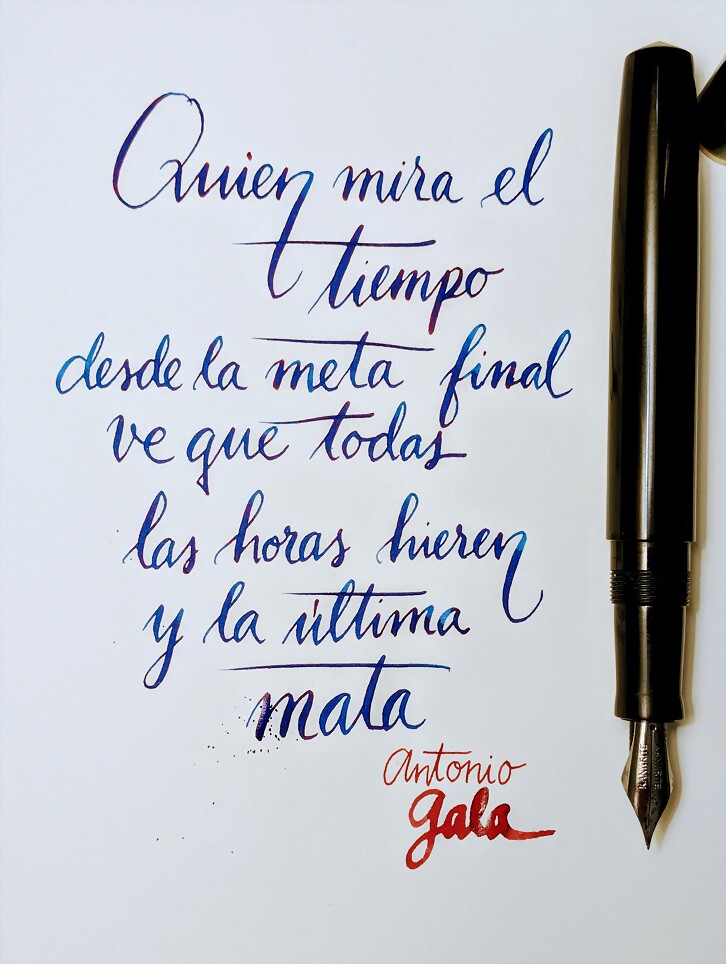 Quien mira el
tiempo
desde la meta final
ve que todas
las horas hieren
y la última
mata
Antonio
Gala
KANWRITE